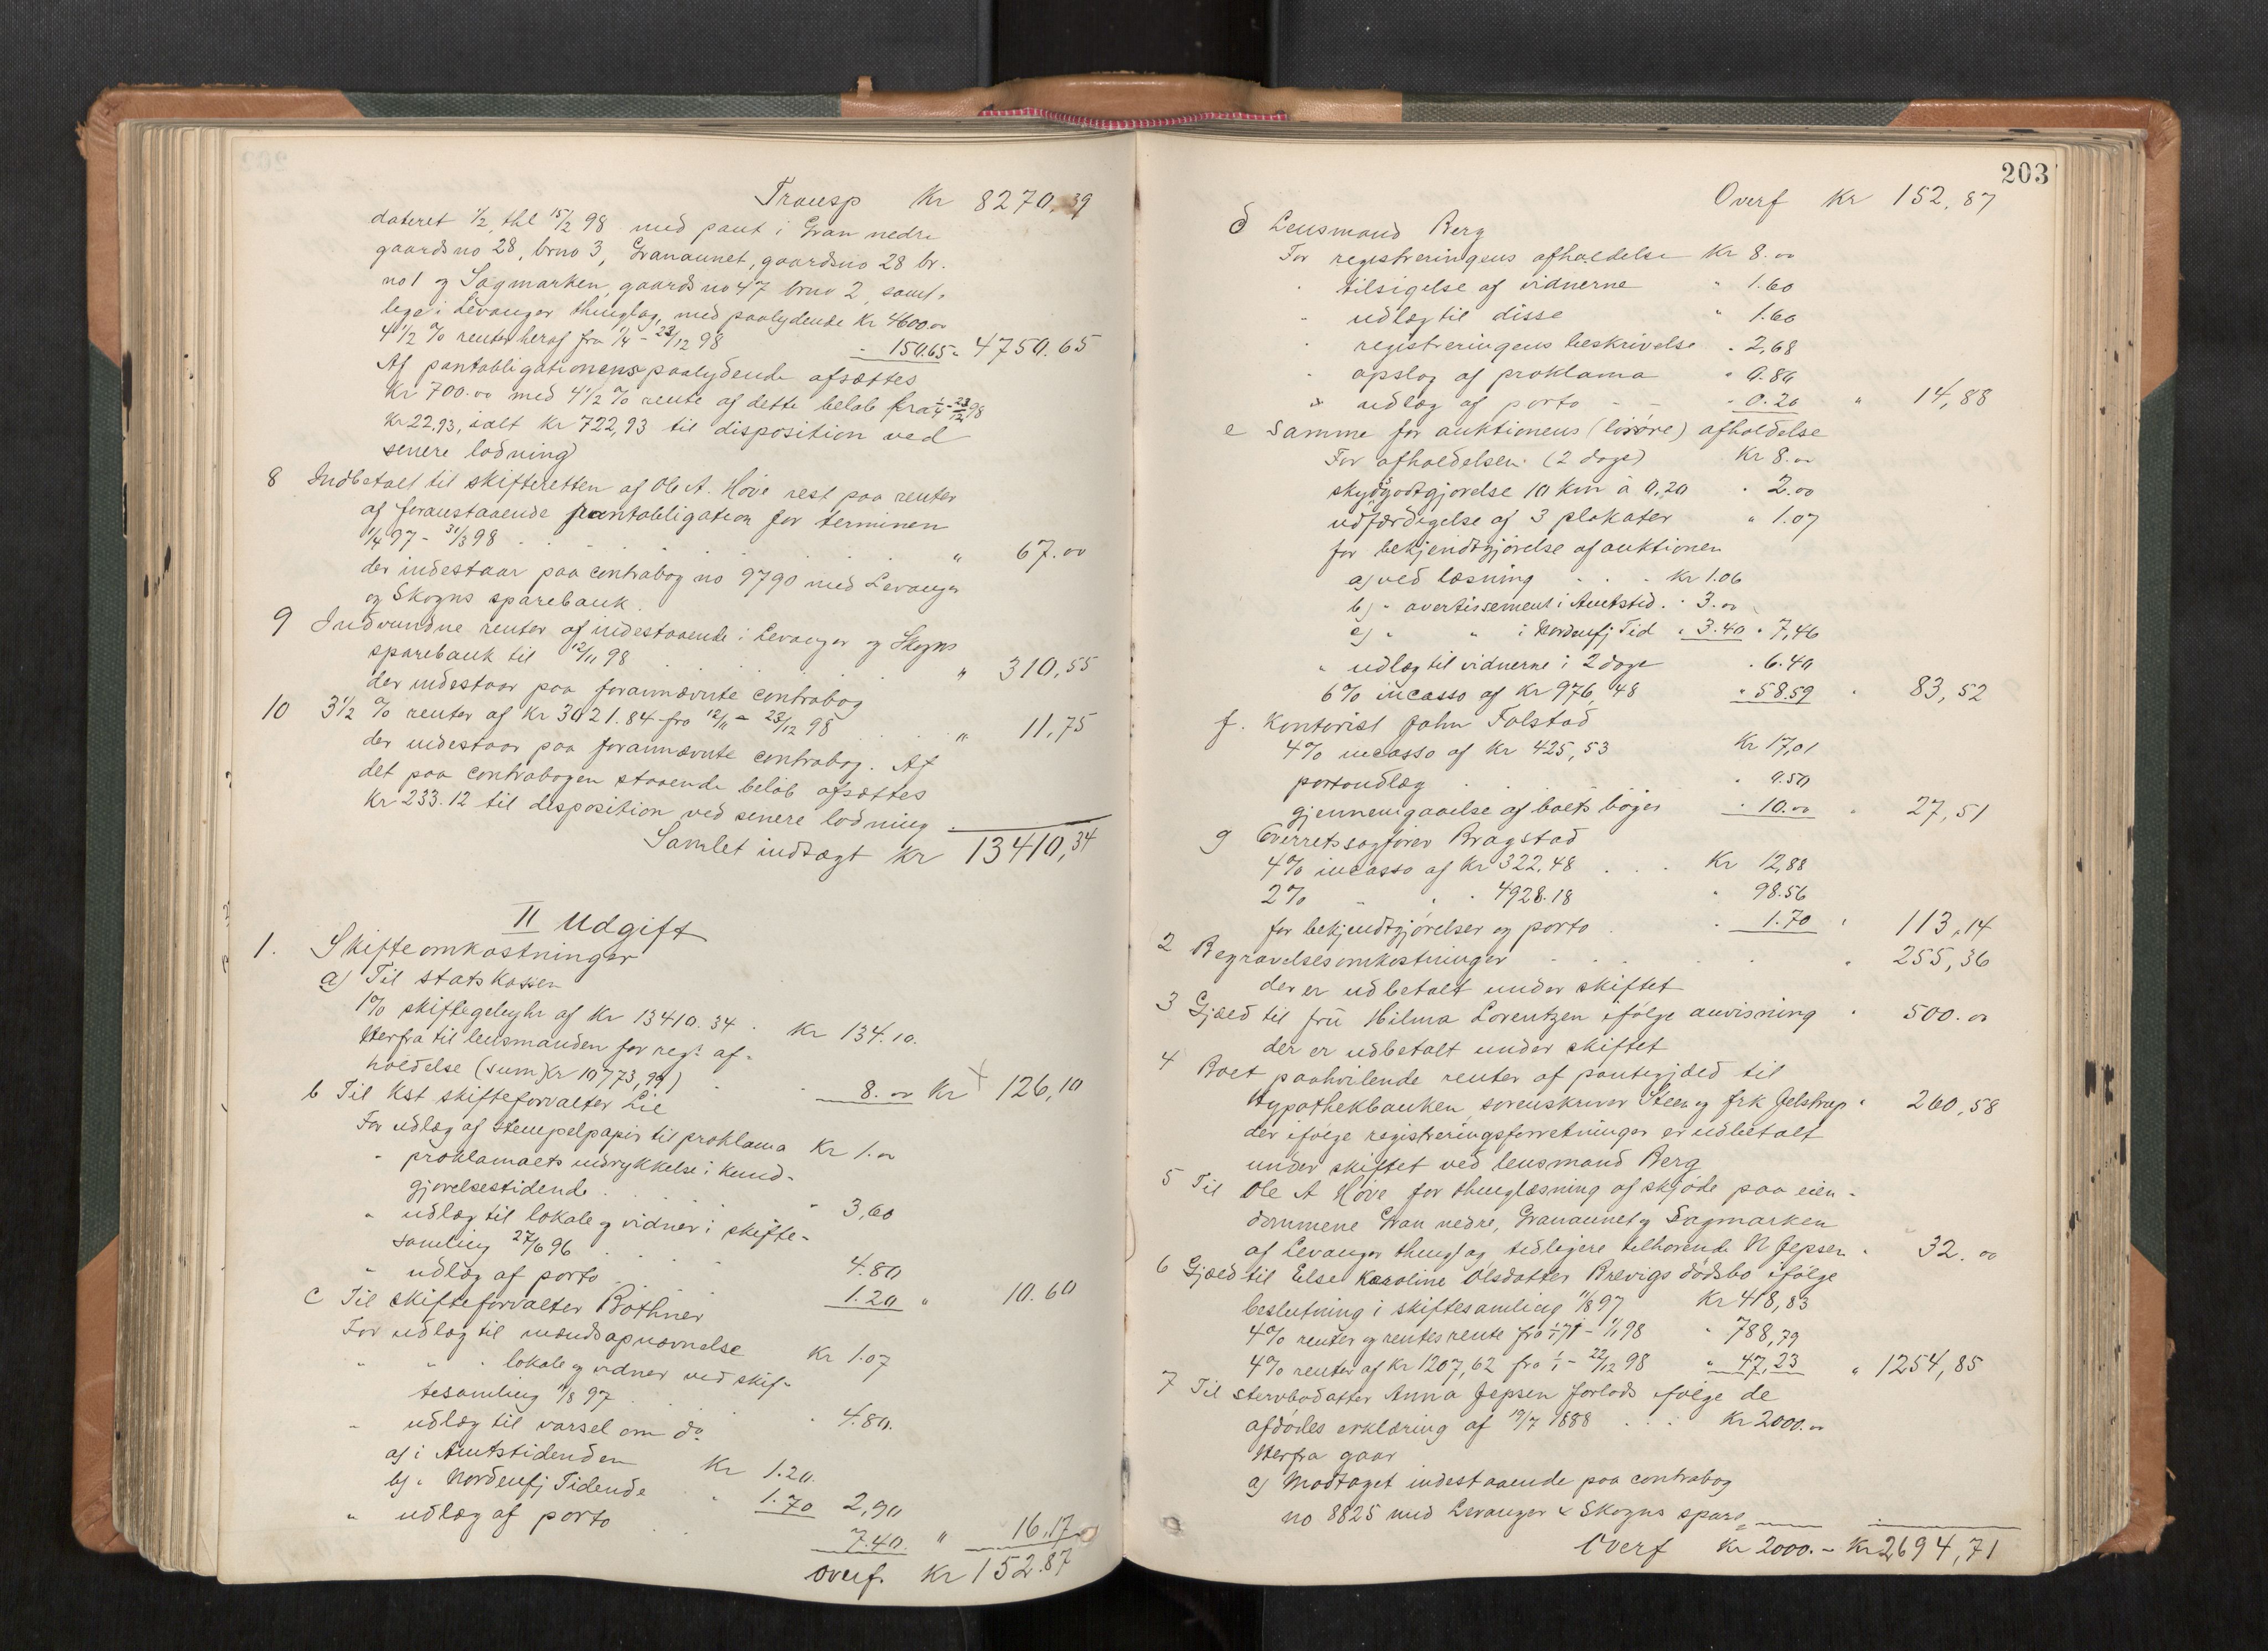 Transp Kr 8270,39
dateret 1/2, thl 15/2 98 med pant i Gran nedre
gaardsno 28, brno 3, Granaunet, gaardsno 28 br.
no 1 og Sagmarken, gaardsno 47 brno 2, samt-
lige i Levanger thinglag, med paalydende Kr 4600.00
4 1/2 % renter heraf fra 1/4 - 23/12 98 " 150.65 " 4750.65
Af pantobligationens paalydende afsættes
Kr 700.00 med 4 1/2 % rente af dette beløb fra 1/4 - 23/12 98
Kr 22,93, ialt Kr 722,93 til disposition ved
senere lodning
8 Indbetalt til skifteretten af Ole A. Høve rest paa renter
af foranstaaende pantobligation for terminen
1/4 97 - 31/3 98 . . . " 67.00
der indestaar paa contrabog no 9790 med Levanger
og Skogns sparebank.
9 Indvundne renter af indestaaende i Levanger og Skogns
sparebank til 12/11 98 . . . " 310,55
der indestaar paa forannævnte contrabog
10 3 1/2 % renter af Kr 3021.84 fra 12/11 - 23/12 98 . . " 11,75
der indestaar paa forannævnte contrabog. Af
det paa contrabogen staaende beløb afsættes
Kr 233.12 til disposition ved senere lodning
Samlet indtægt Kr 13410,34
II Udgift
1. Skifteomkostninger
a) Til statskassen
1% skiftegebyhr af Kr 13410.34 . Kr 134.10.
Herfra til lensmanden for reg.s af-
holdelse (sum Kr 10773,99) . " 8.00 Kr 126,10
b Til Kst skifteforvalter Lie
For udlæg af stempelpapir til proklama Kr 1.00
" proklamaets indrykkelse i Kund-
gjørelsestidende . . . " 3,60
" udlæg til lokale og vidner i skifte-
samling 27/6 96 . . . 4.80
" udlæg af porto . . 1.20 " 10.60
c Til skifteforvalter Bothner
For udlæg til mændsopnævnelse Kr 1.07
" " " lokale og vidner ved skif-
tesamling 11/8 97 . . " 4.80.
" udlæg til varsel om do
a) i Amtstidenden Kr 1.20.
b) " Nordenfj Tidende " 1.70 2,90
" udlæg af porto . 7.40. " 16,17
Overf. Kr 152.87
203
Overf Kr 152,87
d Lensmand Berg
For registreringens afholdelse Kr 8.00
" tilsigelse af vidnerne " 1.60
" udlæg til disse " 1.60
" registreringens beskrivelse " 2,68
" opslag af proklama " 0.80
" udlæg af porto - - " 0.20 " 14,88
e Samme for auktionens (løsøre) afholdelse
For afholdelsen (2 dage) Kr 8.00
skydsgodtgjørelse 10 km à 0,20 " 2.00
udfærdigelse af 3 plakater " 1.07
for bekjendtgjørelse af auktionen
a) ved læsning . . . Kr 1.06
b) " avertissement i Amtstid. " 3.00
c) " " i Nordenfj Tid " 3.40 " 7,46
" udlæg til vidnerne i 2 dage " 6.40
6% incasso af Kr 976,48 " 58.59 " 83,52
f. Kontorist John Falstad
4% incasso af Kr 425,53 Kr 17,01
portoudlæg . . " 0.50
gjennemgaaelse af boets bøger " 10.00 " 27,51
g Overretssagfører Bragstad
4% incasso af Kr 322,48 . . . Kr 12,88
2% " " " 4928.18 " 98.56
for bekjendtgjørelser og porto . " 1.70 " 113,14
2 Begravelsesomkostninger . . . " 255,36
der er udbetalt under skiftet
3 Gjæld til fru Hilma Lorentzen ifølge anvisning " 500.00
der er udbetalt under skiftet
4 Boet paahvilende renter af pantegjæld til
Hypothekbanken, sorenskriver Steen og frk Jelstrup " 260,58
der ifølge registreringsforretninger er udbetalt
under skiftet ved lensmand Berg
5 Til Ole A Høve for thinglæsning af skjøde paa eien-
dommene Gran nedre, Granaunet og Sagmarken
af Levanger thinglag tidligere tilhørende N Jepsen " 32.00
6 Gjæld til Else Karoline Olsdatter Brevigs dødsbo ifølge
beslutning i skiftesamling 11/8 97 Kr 418,83
4% renter og rentesrente fra 1/1 71 - 1/1 98 " 788,79
4% renter af Kr 1207,62 fra 1/1 - 22/12 98 " 47,23 " 1254,85
7 Til stervbodatter Anna Jepsen forlods ifølge de
afdødes erklæring af 19/7 1888 . . . Kr 2000.00
Herfra gaar
a) Modtaget indestaaende paa contrabog
no 8825 med Levanger & Skogns spare-
Overf Kr 2000.- Kr 2694,71